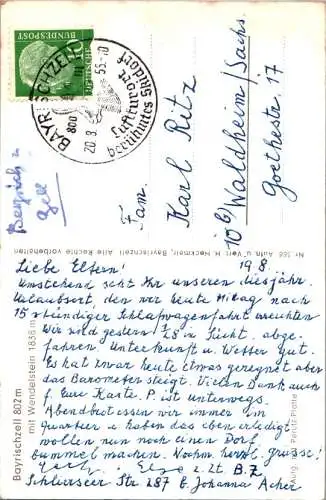 DEUTSCHE
BUNDESPOST
10
BAYRISCHZELL
800
20.8.55.-10
Luftkurort
berühmtes Skidorf
Fam.
Karl Ritz
10b) Waldheim/Sachs.
Goethestr. 17
Nr. 368 Aufn. u. Verl. H. Neckmeir, Bayrischzell Alle Rechte vorbehalten
Bayrischzell 802 m
mit Wendelstein 1838 m
Orig. Perutz-Platte
Liebe Eltern! 19.8.
Umstehend seht Ihr unseren diesjähr.
Urlaubsort, den wir heute Mittag nach
15 stündiger Schlafwagenfahrt erreichten
Wir sind gestern 1/28 in abge-
fahren. Unterkunft u. Wetter gut.
Es hat zwar heute etwas geregnet aber
das Barometer steigt. Vielen Dank auch
f. Eure Karte. P. ist unterwegs.
Abendbrot essen wir immer im
Quartier u. haben das eben erledigt
wollen nun noch einen Dorf-
bummel machen. Nochm. herzl. Grüsse!
z. Zt. B. Z.
Schlierseer Str. 287 b. Johanna Acher